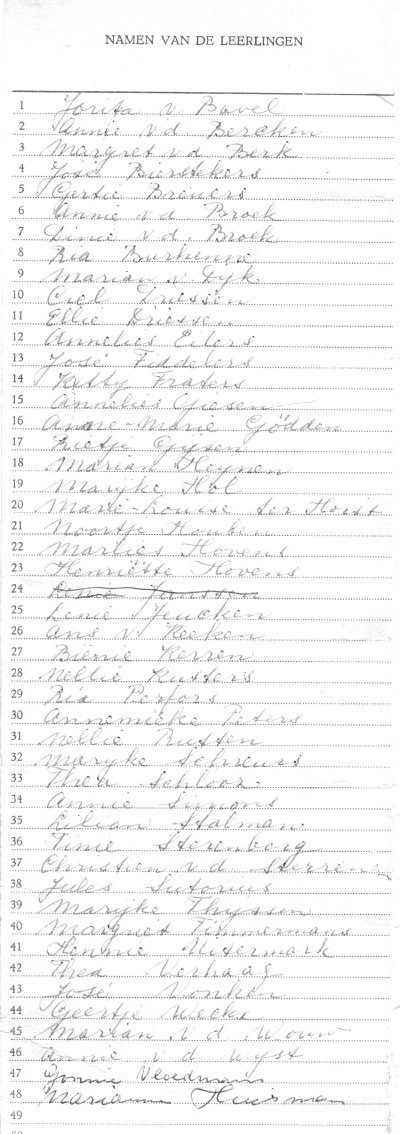 NAMEN VAN DE LEERLINGEN
1 Jorita v Bavel
2 Annie v d Bercken
3 Margret v d Berk
4 José Bierstekers
5 Gertie Breuers
6 Annie v d Broek
7 Linie v d Broek
8 Ria Burhenne
9 Marian v. Dyk.
10 Ciel Driessen
11 Ellie Driessen
12 Annelies Eilers
13 José Fiddelers
14 Kitty Fraters
15 Annelies Giesen
16 Anne-Marie Gödden
17 Rietje Gysen
18 Marian Heynen
19 Maryke Hol
20 Marie-Louise ter Horst
21 Noortje Houben
22 Marlies Hovens
23 Henriëtte Hovens
24 Janssen
25 Lenie Jeucken
26 Ans v Keeken
27 Bienie Kerren
28 Nellie Kusters
29 Ria Perfors
30 Annemieke Peters
31 Nellie Russen
32 Maryke Schreurs
33 Thea Schloor.
34 Annie Simons
35 Lilian Stalman.
36 Tinie Sterenborg
37 Christien v d Sterren
38 Jules Sutorius
39 Maryke Thyssen
40 Margriet Timmermans
41 Hennie Uitermark
42 Thea Verhaag
43 José Vonken
44 Geertje Weekx
45 Marian v d Wouw
46 Annie v d Wyst
47 Yonnie Vloedmans
48 Marianne Huisman
49